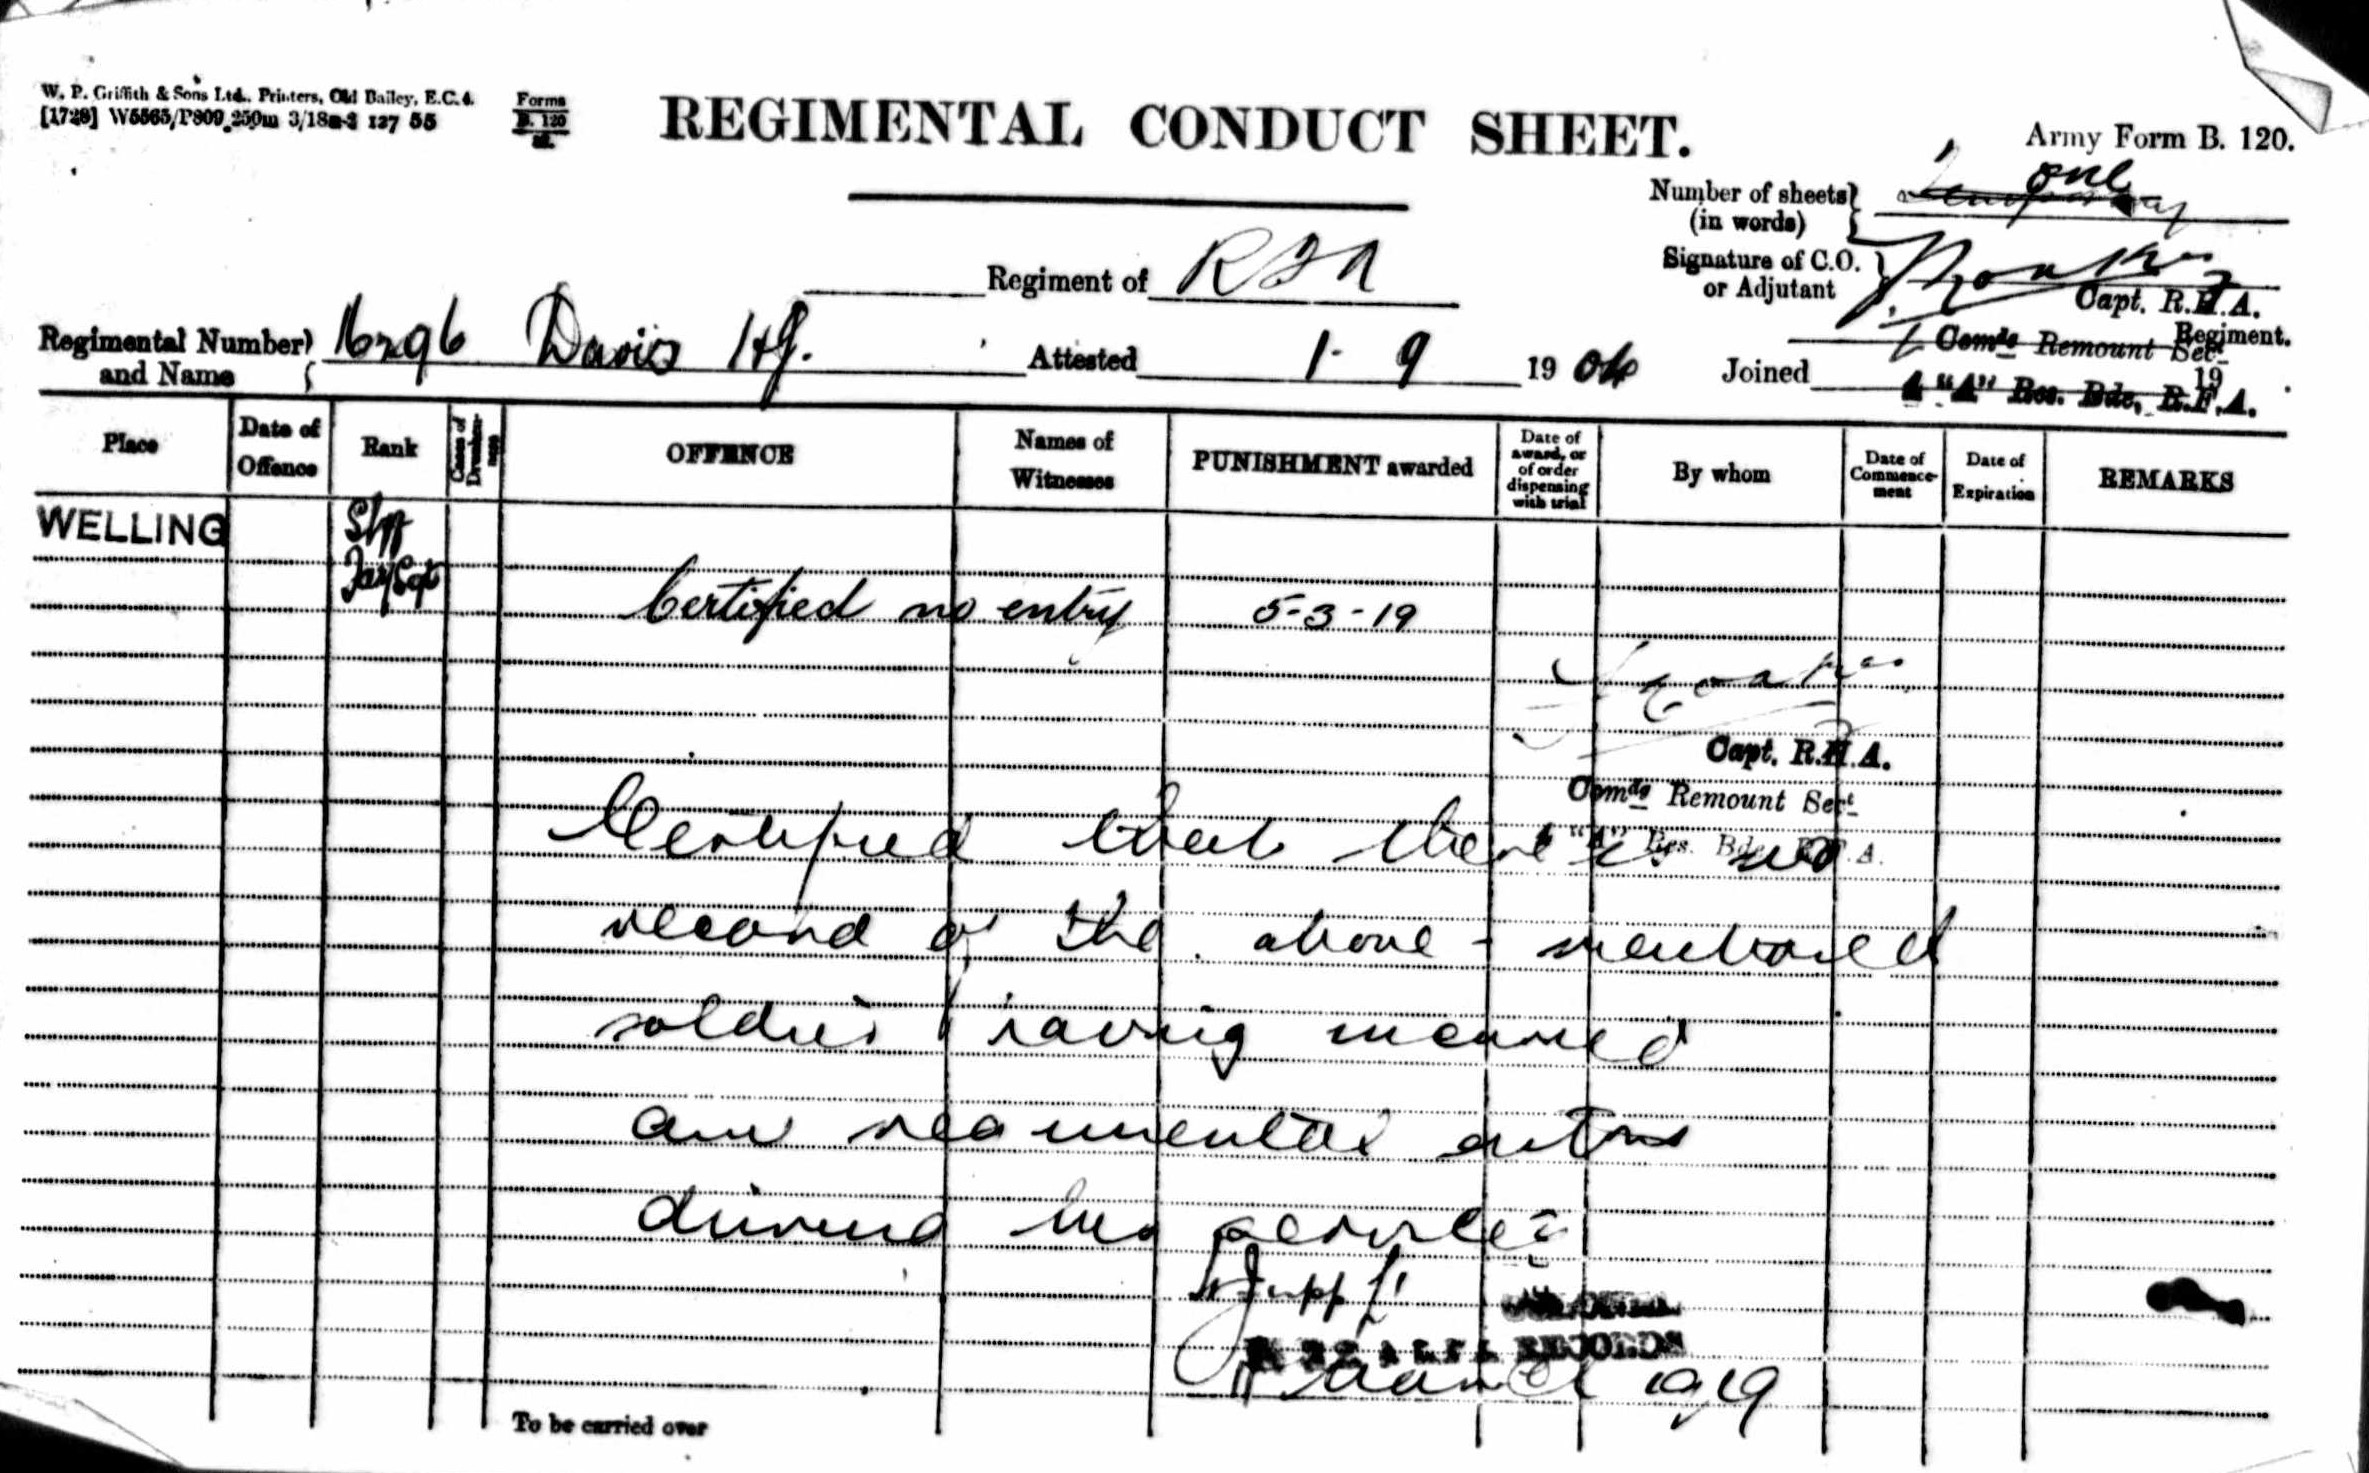 W. P. Griffith & Sons Ltd., Printers, Old Bailey, E.C.4.
[1728] W5565/P809 250m 3/18
Forms
B. 120
REGIMENTAL CONDUCT SHEET.
Army Form B. 120.
Number of sheets (in words) one
Signature of C.O. or Adjutant
Capt. R.H.A.
Regiment of RFA
Regiment.
Comdg Remount Sect
Regimental Number and Name Davis HJ. Attested 1- 9 1904 Joined 19
"A" Res. Bde, R.F.A.
Place
Date of Offence
Rank
Cases of Drunkenness
OFFENCE
Names of Witnesses
PUNISHMENT awarded
Date of award, or of order dispensing with trial
By whom
Date of Commencement
Date of Expiration
REMARKS
WELLING
Far/Sgt
Certified no entry 5-3-19
Capt. R.H.A.
Comdg Remount Sect
"A" Res. Bde. R.F.A.
Certified that there is no
record of the above-mentioned
soldier having incurred
any regimental entries
during his service
Jupp Lt
RECORDS
March 1919
To be carried over